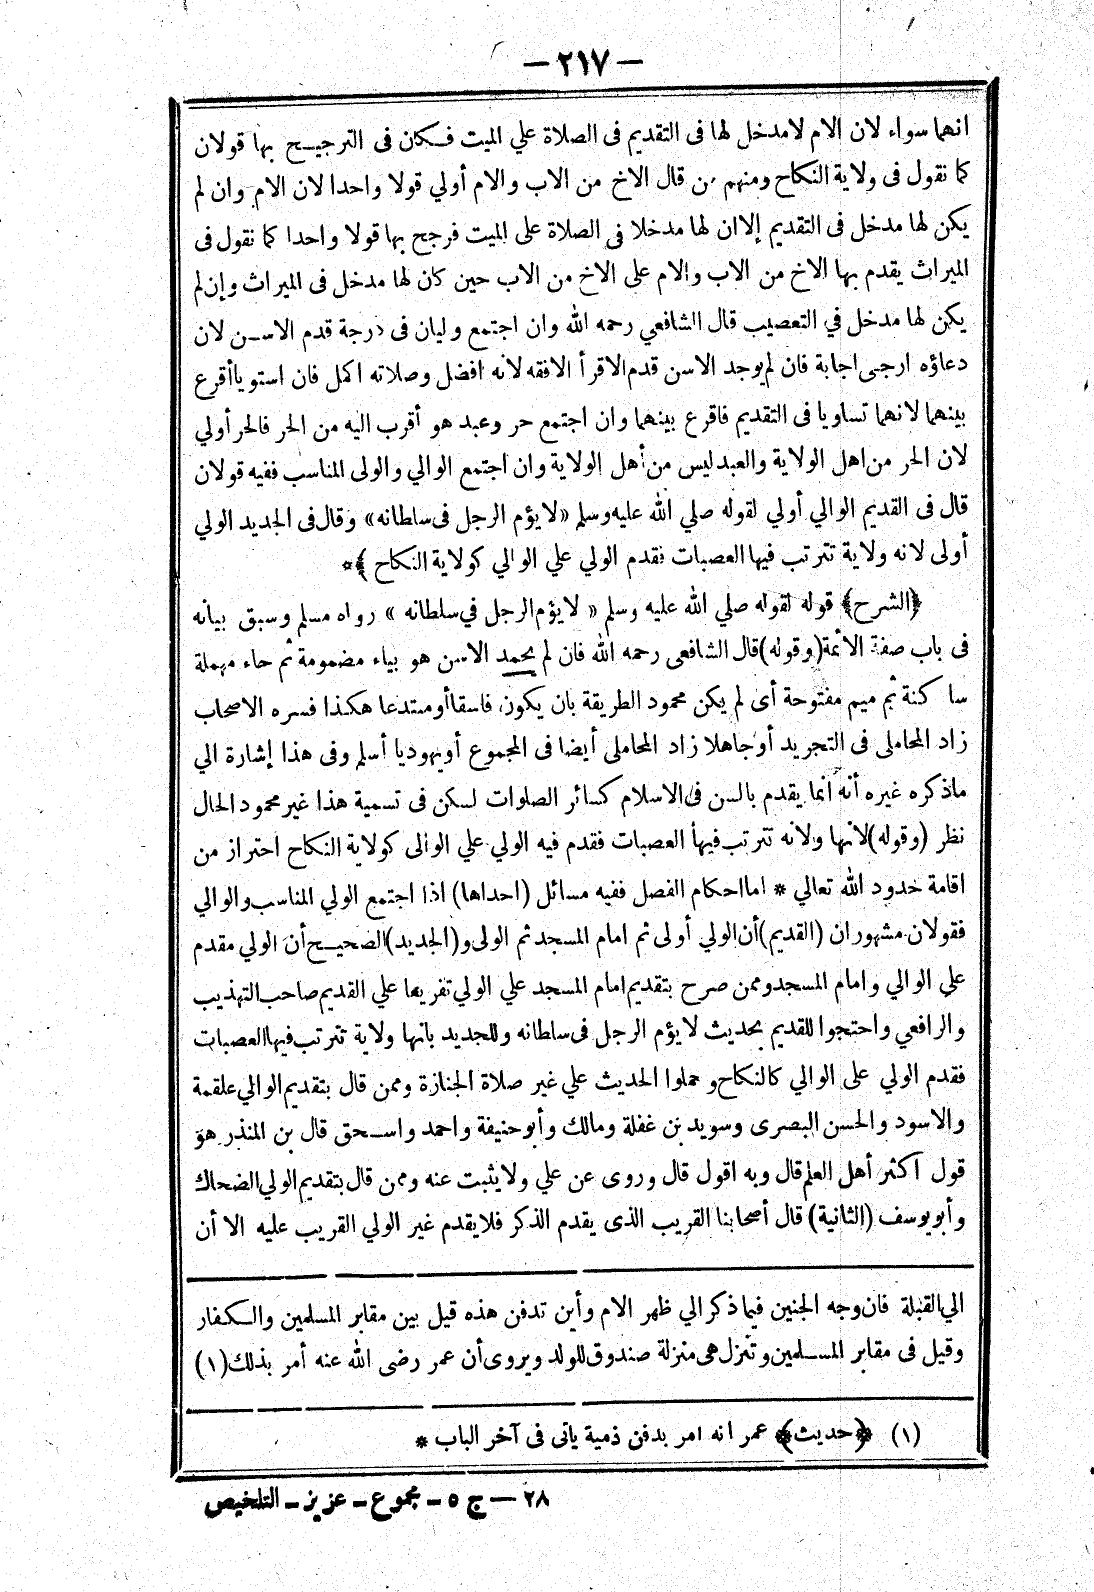 — ٢١٧ —
انهما سواء لان الام لامدخل لها فى التقديم فى الصلاة علي الميت فكان فى الترجيح بها قولان
كما نقول فى ولاية النكاح ومنهم من قال الاخ من الاب والام أولي قولا واحدا لان الام وان لم
يكن لها مدخل فى التقديم إلاان لها مدخلا في الصلاة على الميت فرجح بها قولا واحدا كما نقول فى
الميراث يقدم بها الاخ من الاب والام على الاخ من الاب حين كان لها مدخل فى الميراث وإن لم
يكن لها مدخل في التعصيب قال الشافعي رحمه الله وان اجتمع وليان فى درجة قدم الاسن لان
دعاؤه ارجى اجابة فان لم يوجد الاسن قدم الاقرأ الافقه لانه افضل وصلاته اكمل فان استويا أقرع
بينهما لانهما تساويا فى التقديم فاقرع بينهما وان اجتمع حر وعبد هو أقرب اليه من الحر فالحر أولي
لان الحر من اهل الولاية والعبد ليس من أهل الولاية وان اجتمع الوالي والولى المناسب ففيه قولان
قال فى القديم الوالي أولي لقوله صلي الله عليه وسلم «لا يؤم الرجل فى سلطانه» وقال فى الجديد الولي
أولى لانه ولاية تترتب فيها العصبات فقدم الولي علي الوالي كولاية النكاح ﴾*
﴿الشرح﴾ قوله لقوله صلي الله عليه وسلم « لا يؤم الرجل في سلطانه » رواه مسلم وسبق بيانه
فى باب صفة الائمة (وقوله) قال الشافعى رحمه الله فان لم يحمد الاسن هو بياء مضمومة ثم حاء مهملة
سا كنة ثم ميم مفتوحة أى لم يكن محمود الطريقة بان يكون فاسقا أومبتدعا هكذا فسره الاصحاب
زاد المحاملى فى التجريد أوجاهلا زاد المحاملى أيضا فى المجموع أويهوديا أسلم وفى هذا إشارة الي
ماذكره غيره أنه انما يقدم بالسن فى الاسلام كسائر الصلوات لكن فى تسمية هذا غير محمود الحال
نظر (وقوله) لانها ولانه تترتب فيها العصبات فقدم فيه الولي علي الوالى كولاية النكاح احتراز من
اقامة حدود الله تعالي * اما احكام الفصل ففيه مسائل (احداها) اذا اجتمع الولي المناسب والوالي
فقولان مشهوران (القديم) أن الولي أولى ثم امام المسجد ثم الولى و(الجديد) الصحيح أن الولي مقدم
علي الوالي وامام المسجد وممن صرح بتقديم امام المسجد علي الولي تفريعا علي القديم صاحب التهذيب
والرافعي واحتجوا للقديم بحديث لا يؤم الرجل فى سلطانه وللجديد بانها ولاية تترتب فيها العصبات
فقدم الولي على الوالي كالنكاح وحملوا الحديث علي غير صلاة الجنازة وممن قال بتقديم الوالي علقمة
والاسود والحسن البصرى وسويد بن غفلة ومالك وأبو حنيفة واحمد واسحق قال بن المنذر هو
قول اكثر أهل العلم قال وبه اقول قال وروى عن علي ولا يثبت عنه وممن قال بتقديم الولي الضحاك
وأبو يوسف (الثانية) قال أصحابنا القريب الذى يقدم الذكر فلا يقدم غير الولي القريب عليه الا أن
الي القبلة فان وجه الجنين فيما ذكر الي ظهر الام وأين تدفن هذه قيل بين مقابر المسلمين والكفار
وقيل فى مقابر المسلمين وتنزل هى منزلة صندوق للولد ويروى أن عمر رضى الله عنه أمر بذلك (١)
(١) ﴿حديث﴾ عمر انه امر بدفن ذمية ياتى فى آخر الباب *
٢٨ — ج ٥ - مجموع - عزيز - التلخيص